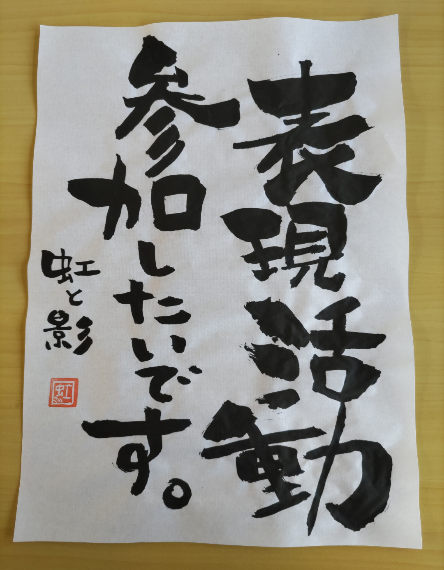 表現活動
参加したいです。
虹と影
虹